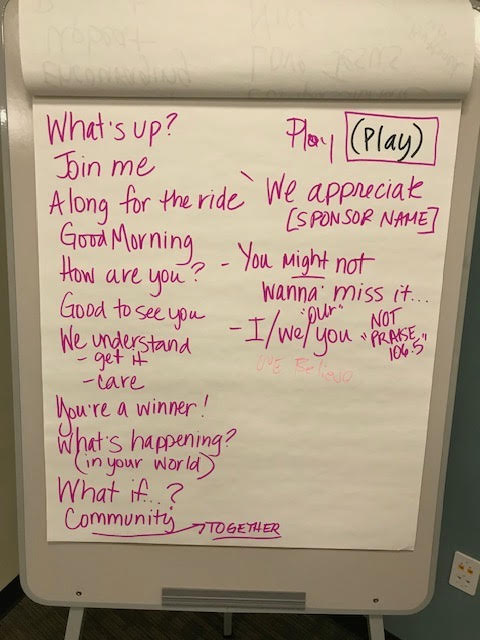 What's up?
Join me
Along for the ride
Good Morning
How are you?
Good to see you
We understand
- get it
- care
You're a winner!
What's happening?
(in your world)
What if...?
Community → TOGETHER
Play (Play)
We appreciate
[SPONSOR NAME]
- You might not
wanna miss it...
"our"
- I/we/you NOT
"PRAISE
106.5"
We Believe